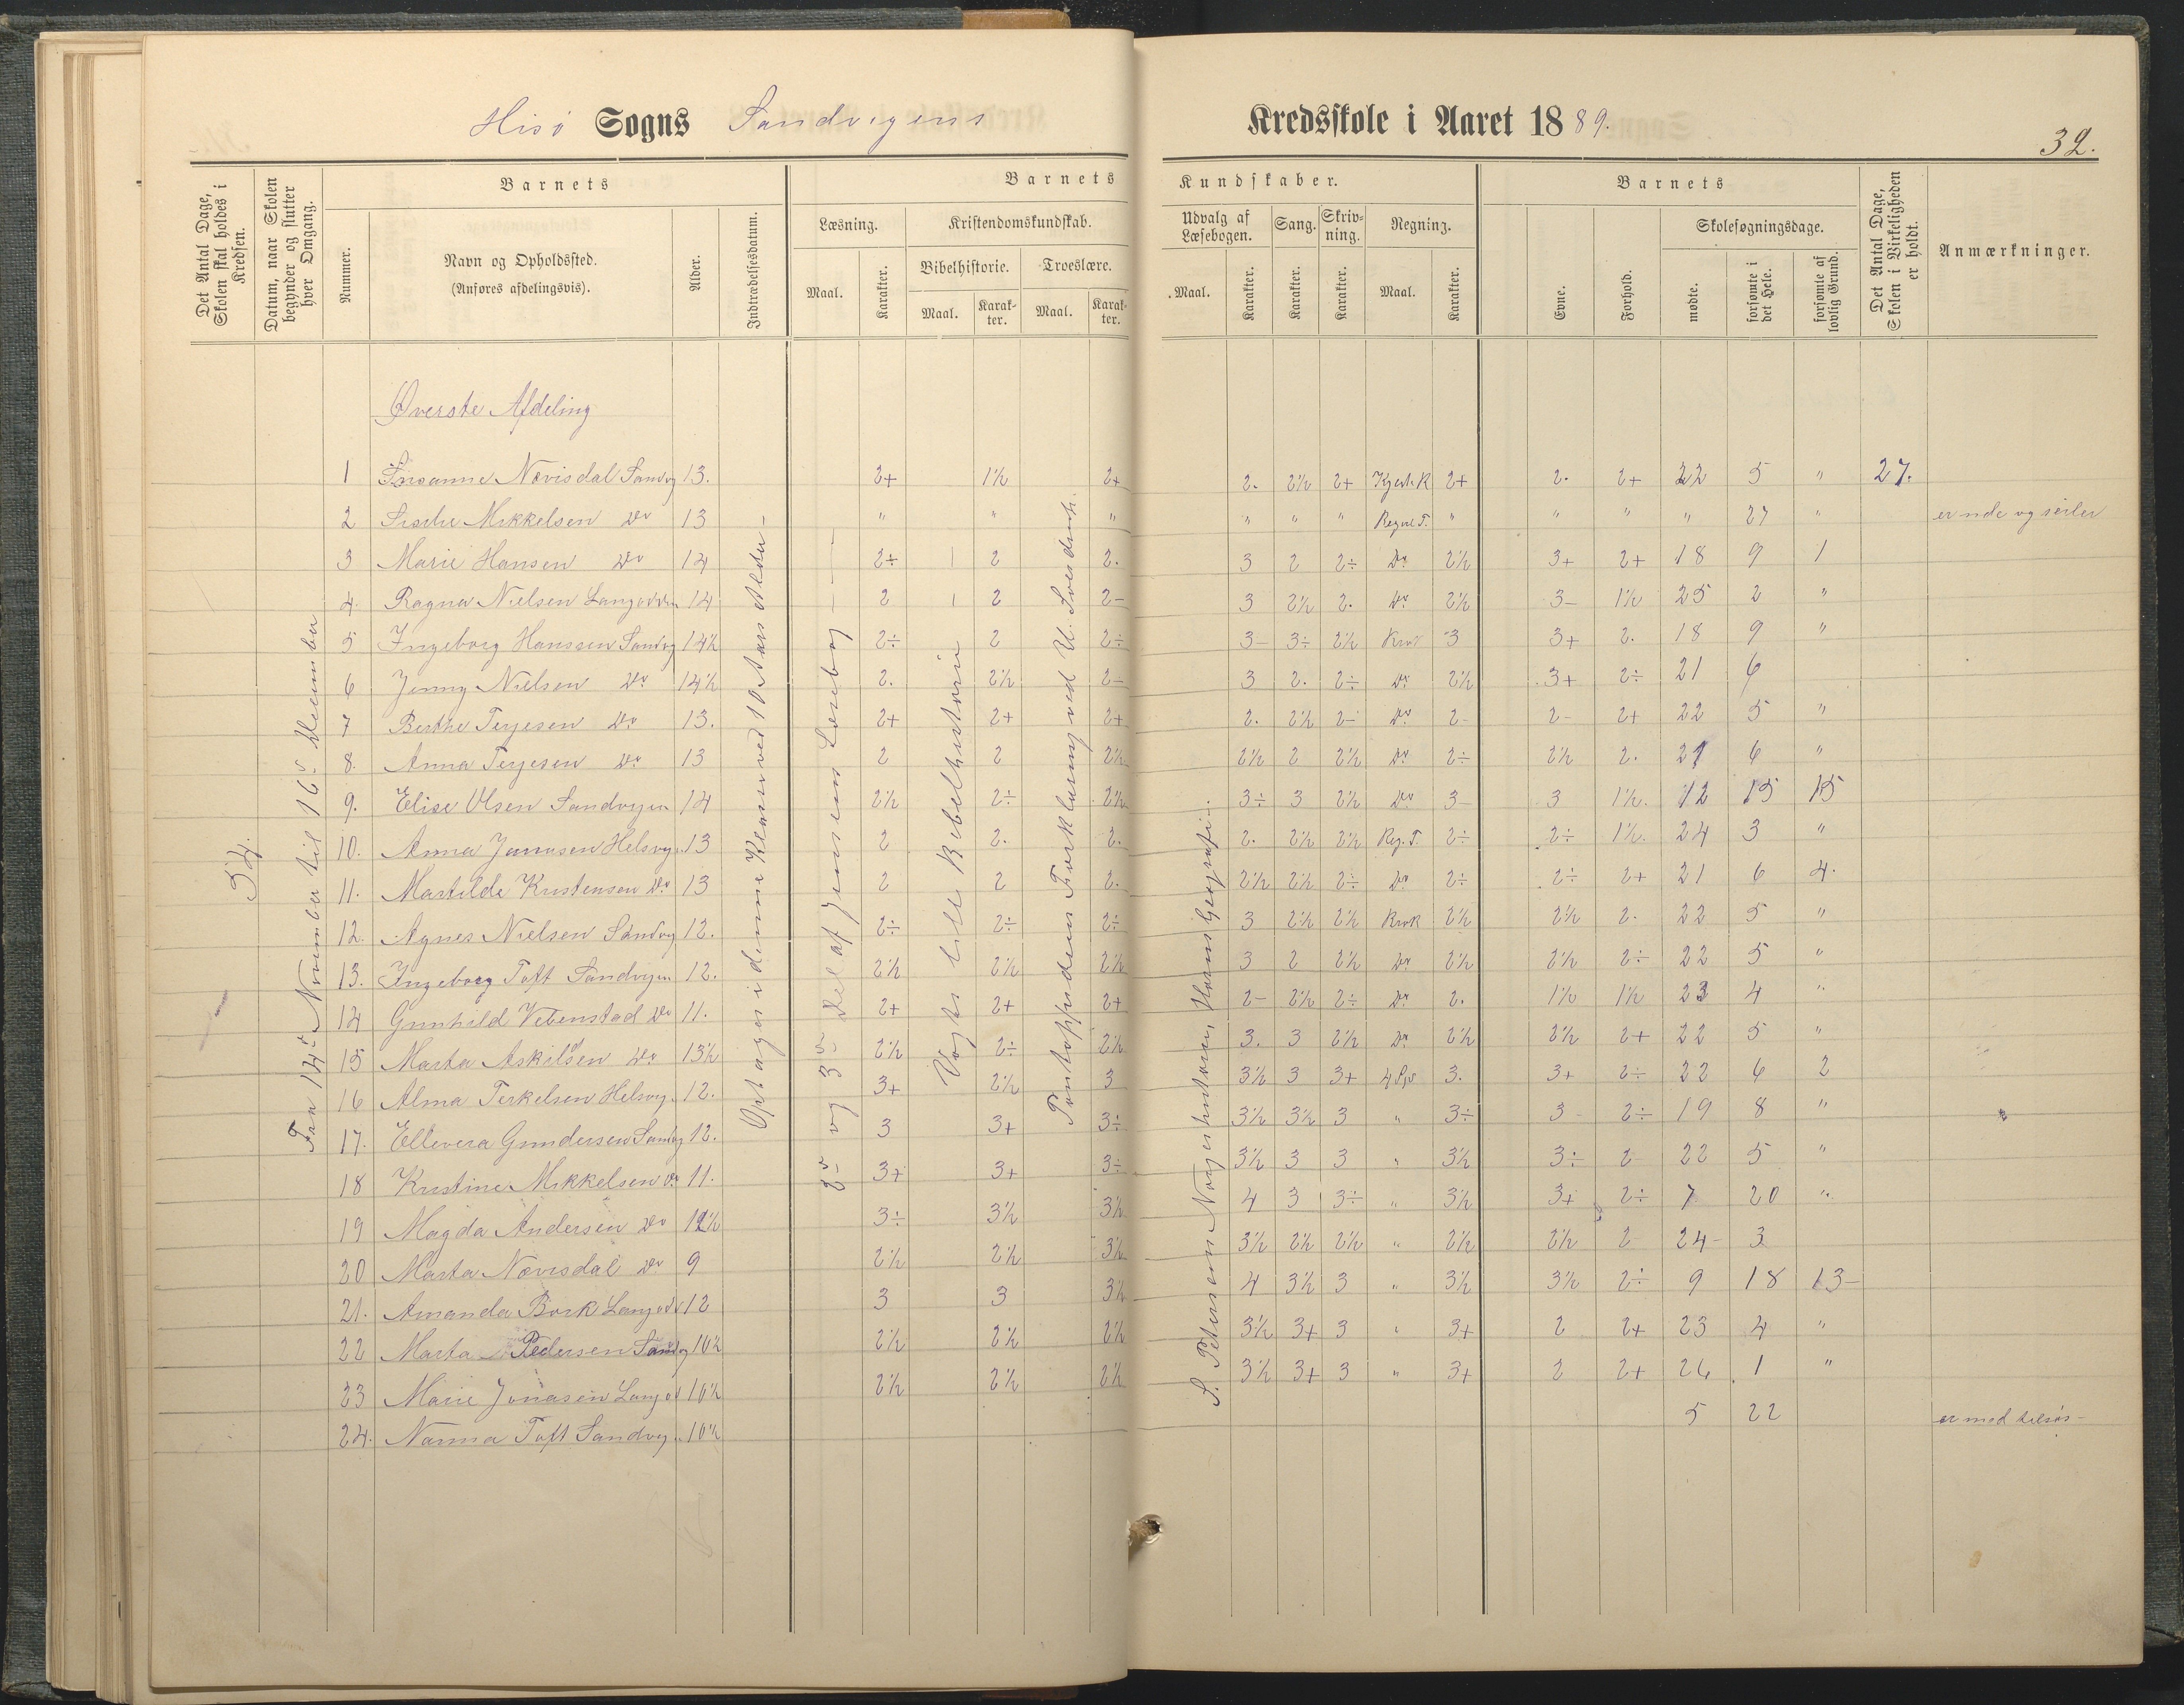 Hisø Sogns Sandvigens Kredsskole i Aaret 1889.
32.
Det Antal Dage, Skolen skal holdes i Kredsen.
Datum, naar Skolen begynder og slutter hver Omgang.
Barnets
Nummer.
Navn og Opholdssted.
(Anføres afdelingsvis).
Alder.
Indtrædelsesdatum.
Barnets Kundskaber.
Læsning.
Maal.
Karakter.
Kristendomskundskab.
Bibelhistorie.
Maal.
Karakter.
Troeslære.
Maal.
Karakter.
Udvalg af Læsebogen.
Maal.
Karakter.
Sang.
Karakter.
Skrivning.
Karakter.
Regning.
Maal.
Karakter.
Barnets
Evne.
Forhold.
Skolesøgningsdage.
mødte.
forsømte i det Hele.
forsømte af lovlig Grund.
Det Antal Dage, Skolen i Virkeligheden er holdt.
Anmærkninger.
Øverste Afdeling
54.
Fra 14de November til 16de December
Optages i denne Klasse ved 10 Aars Alder
2den og 3die Del af Jensens Læsebog
Vogts lille Bibelhistorie
Pontoppidans Forklaring ved U. Sverdrup.
S. Petersens Norgeshistorie, Horns Geografi
1 Susanne Nævisdal Sandvg 13. 2+ 1½ 2+ 2. 2½ 2+ 2+ 2. 2+ 22 5 " 27.
2 Mikkelsen Do 13 " " " " " " Regul T. " " " " 27 "
3 Marie Hansen Do 14 2÷ 2 2. 3 2 2÷ Do 2½ 3+ 2+ 18 9 1
4. Ragna Nielsen Langodden 14 2 2 2- 3 2½ 2. Do 2½ 3- 1½ 25 2 "
5 Ingeborg Hanssen Sandvg 14½ 2÷ 2 2÷ 3- 3÷ 2½ 3 3+ 2. 18 9 "
6 Jenny Nielsen Do 14½ 2. 2½ 2- 3 2. 2÷ Do 2½ 3+ 2÷ 21 6
7 Berthe Terjesen Do 13. 2+ 2+ 2+ 2. 2½ 2- Do 2- 2- 2+ 22 5 "
8. Anna Terjesen Do 13 2 2 2½ 2½ 2 2½ Do 2÷ 2½ 2. 21 6 "
9. Elise Olsen Sandvigen 14 2½ 2÷ 2½ 3÷ 3 2½ Do 3- 3 1½. 12 15 15
10. Anna Jonnsen Helsvg. 13 2 2. 2. 2. 2½ 2½ Reg. T. 2÷ 2÷ 1½. 24 3 "
11. Martilde Kristensen Do 13 2 2 2. 2½ 2½ 2÷ Do 2÷ 2÷ 2+ 21 6 4.
12. Agnes Nielsen Sandvg 12. 2÷ 2÷ 2÷ 3 2½ 2½ Brøk 2½ 2½ 2. 22 5 "
13. Ingeborg Toft Sandvigen 12. 2½ 2½ 2½ 3 2 2½ Do 2½ 2½ 2÷ 22 5 "
14 Gunhild Vebenstad Do 11. 2+ 2+ 2+ 2- 2½ 2÷ Do 2. 1½ 1½ 23 4 "
15 Marta Askilsen Do 13½ 2½ 2÷ 2½ 3. 3 2½ Do 2½ 2½ 2+ 22 5 "
16 Alma Terkelsen Helsvg. 12. 3+ 2½ 3 3½ 3 3+ 3. 3+ 2÷ 22 6 2
17. Ellevera Gundersen Sandvg 12. 3 3+ 3÷ 3½ 3½ 3 " 3÷ 3- 2÷ 19 8 "
18 Kristine Mikkelsen Do 11. 3+ 3+ 3÷ 3½ 3 3 " 3½ 3÷ 2 22 5 "
19 Magda Andersen Do 12½ 3÷ 3½ 3½ 4 3 3÷ " 3½ 3+ 2÷ 7 20 "
20 Marta Nævisdal Do 9 2½ 2½ 3½ 3½ 2½ 2½ " 2½ 2½ 2 24 3
21. Amanda Bork Langodd 12 3 3 3½ 4 3½ 3 " 3½ 3½ 2÷ 9 18 13
22 Marta Pedersen Sandvg 10½ 2½ 2½ 2½ 3½ 3+ 3 " 3+ 2 2+ 23 4 "
23 Marie Jonasen Langod 10½ 2½ 2½ 2½ 3½ 3+ 3 " 3+ 2 2+ 26 1 "
24. Nanna Toft Sandvg. 10½ 5 22